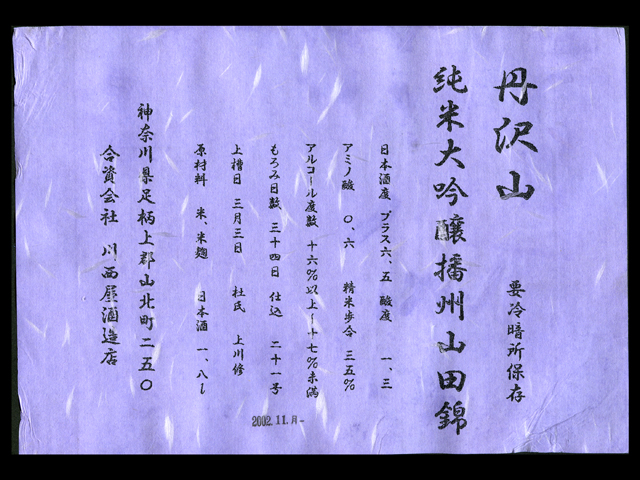 丹沢山
要冷暗所保存
純米大吟醸播州山田錦
日本酒度 プラス六、五 酸度 一、三
アミノ酸 〇、六 精米歩合 三五%
アルコール度数 十六%以上~十七%未満
もろみ日数 三十四日 仕込 二十一号
上槽日 三月三日 杜氏 上川修
原材料 米、米麹 日本酒 一、八ℓ
神奈川県足柄上郡山北町二五〇
合資会社 川西屋酒造店
2002.11.月-